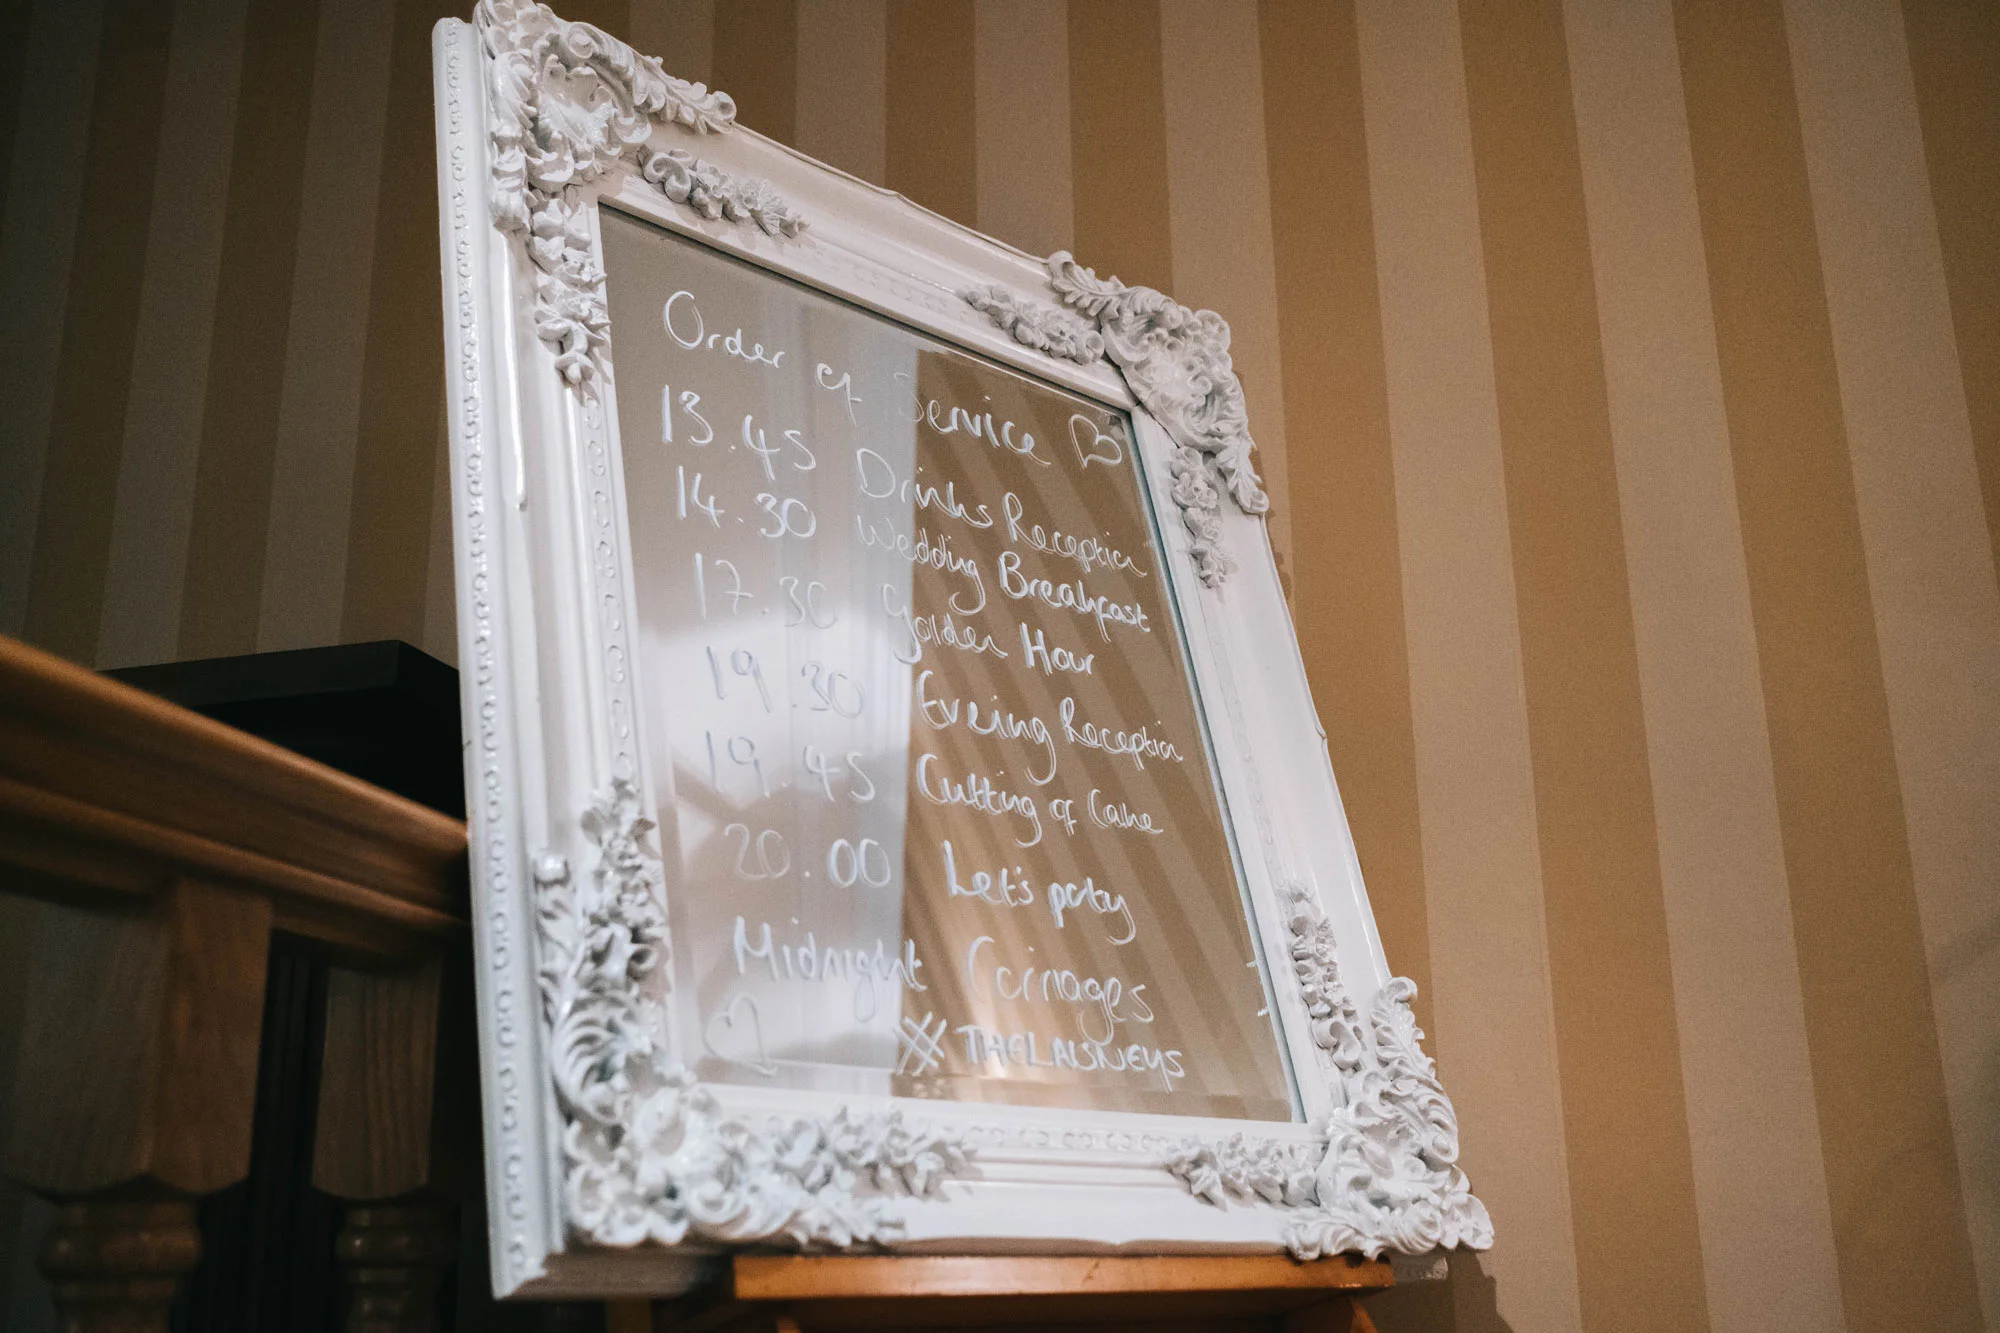 Order of Service
13.45 Drinks Reception
14.30 Wedding Breakfast
17.30 Golden Hour
19.30 Evening Reception
19.45 Cutting of Cake
20.00 Let's party
Midnight Carriages
#THELAISNEYS